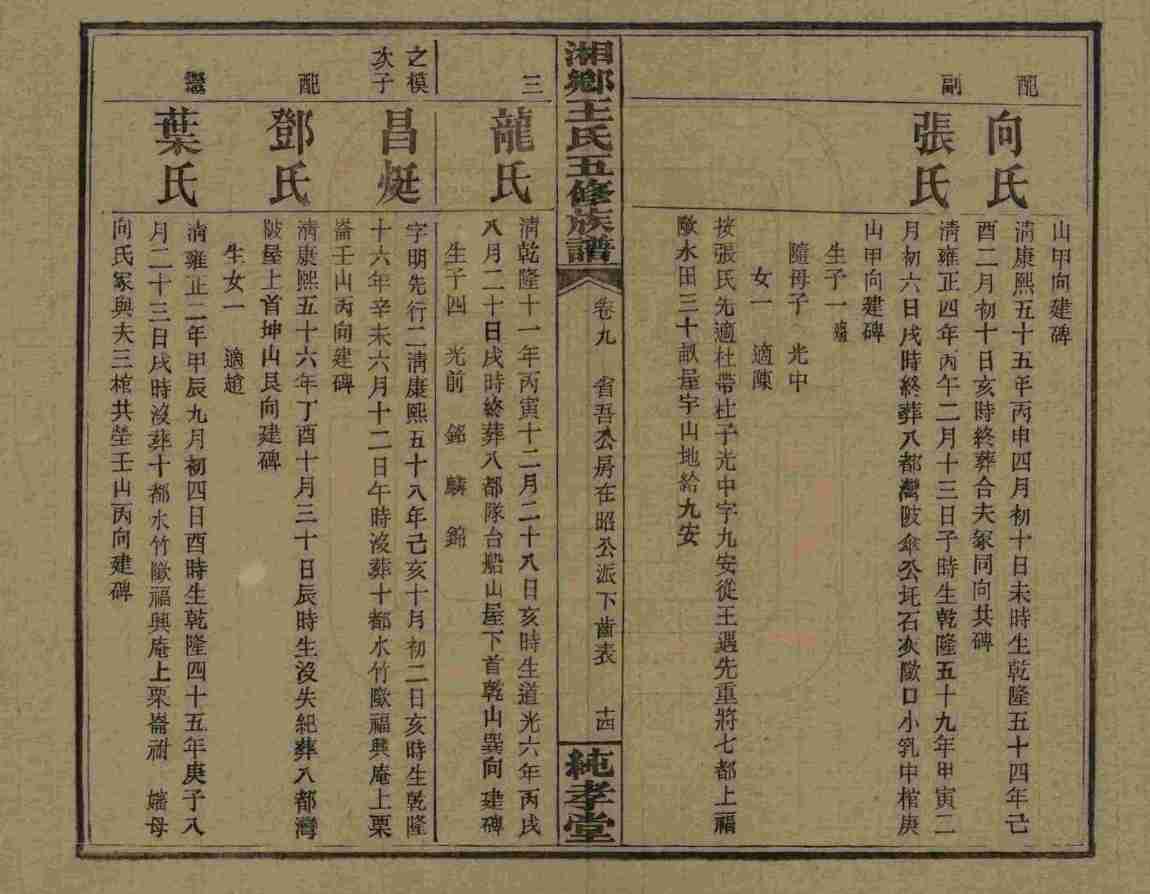 山甲向建碑
配
向氏
清康熙五十五年丙申四月初十日未時生乾隆五十四年己
酉二月初十日亥時終葬合夫冢同向共碑
副
張氏
清雍正四年丙午二月十三日子時生乾隆五十九年甲寅二
月初六日戌時終葬八都灣陂傘公坨石次歐口小乳中棺庚
山甲向建碑
生子一
隨母子 光中
女一 適陳
按張氏先適杜帶杜子光中字九安從王遇先重將七都上福
歐水田三十畝屋宇山地給九安
湘鄉王氏五修族譜
卷九 省吾公房在昭公派下齒表 十四
純孝堂
三
龍氏
清乾隆十一年丙寅十二月二十八日亥時生道光六年丙戌
八月二十日戌時終葬八都隊台船山屋下首乾山巽向建碑
生子四 光前 銘 麟 錦
之模
次子
昌艇
字明先行二清康熙五十八年己亥十月初二日亥時生乾隆
十六年辛未六月十二日午時沒葬十都水竹歐福興庵上栗
崙壬山丙向建碑
配
鄧氏
清康熙五十六年丁酉十月三十日辰時生沒失紀葬八都灣
陂屋上首坤山艮向建碑
生女一 適趙
繼
葉氏
清雍正二年甲辰九月初四日酉時生乾隆四十五年庚子八
月二十三日戌時沒葬十都水竹歐福興庵上栗崙祔 嬸母
向氏冢與夫三棺共塋壬山丙向建碑